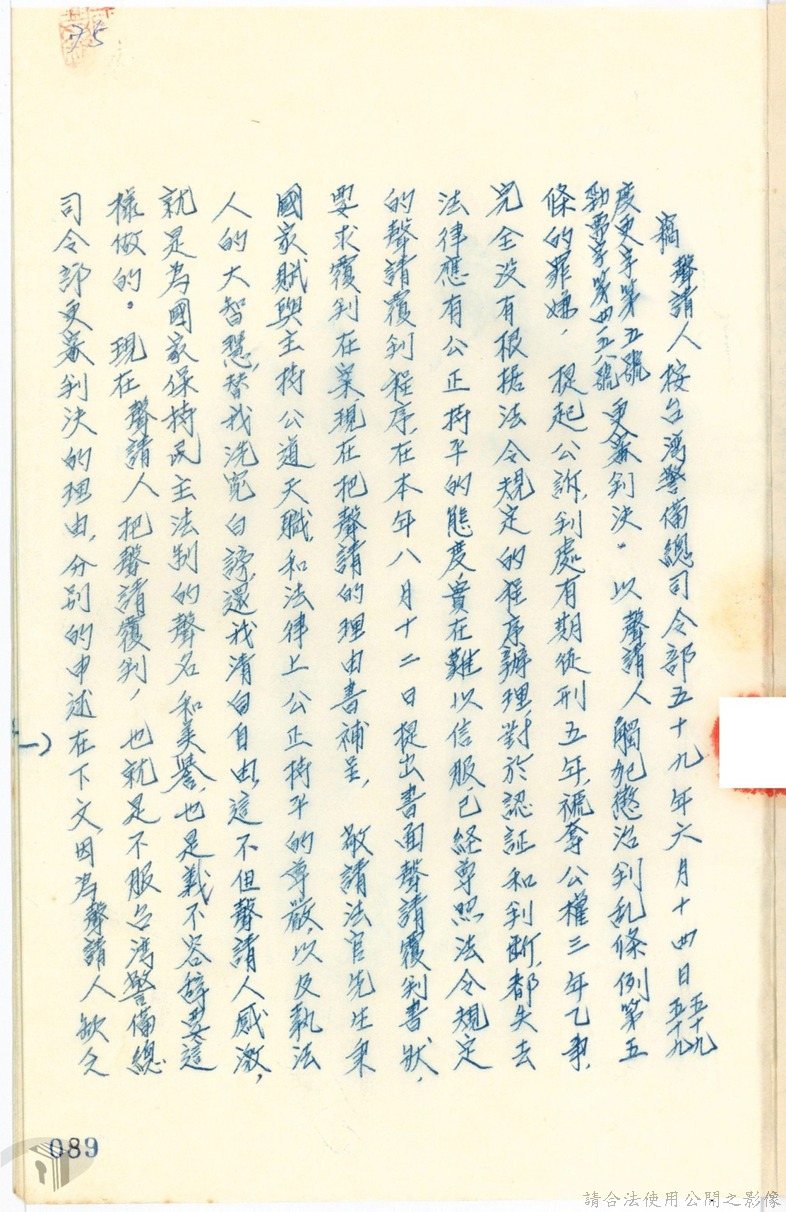 75
竊聲請人按台湾警備總司令部五十九年六月十四日五十九五十九
度更字第五號
勁需字第四五八號更審判決。以聲請人觸犯懲治判乱條例第五
條的罪嫌，提起公訴，判處有期徒刑五年，褫奪公權三年乙事，
完全没有根据法令規定的程序辦理，對於認証和判断，都失去
法律應有公正持平的態度，實在難以信服，已経尊照法令規定
的聲請覆判程序，在本年八月十二日提出書面聲請覆判書狀，
要求覆判在案，現在把聲請的理由書補呈，敬請法官先生秉
國家賦與主持公道天職，和法律上公正持平的尊嚴，以及執法
人的大智慧，替我洗寃白謗，還我清白自由，這不但聲請人感激，
就是為國家保持民主法制的聲名和美譽，也是義不容辞要這
樣做的。現在聲請人把聲請覆判，也就是不服台湾警備總
司令部更審判決的理由，分别的申述在下文，因為聲請人欸乏
一）
089
請合法使用公開之影像